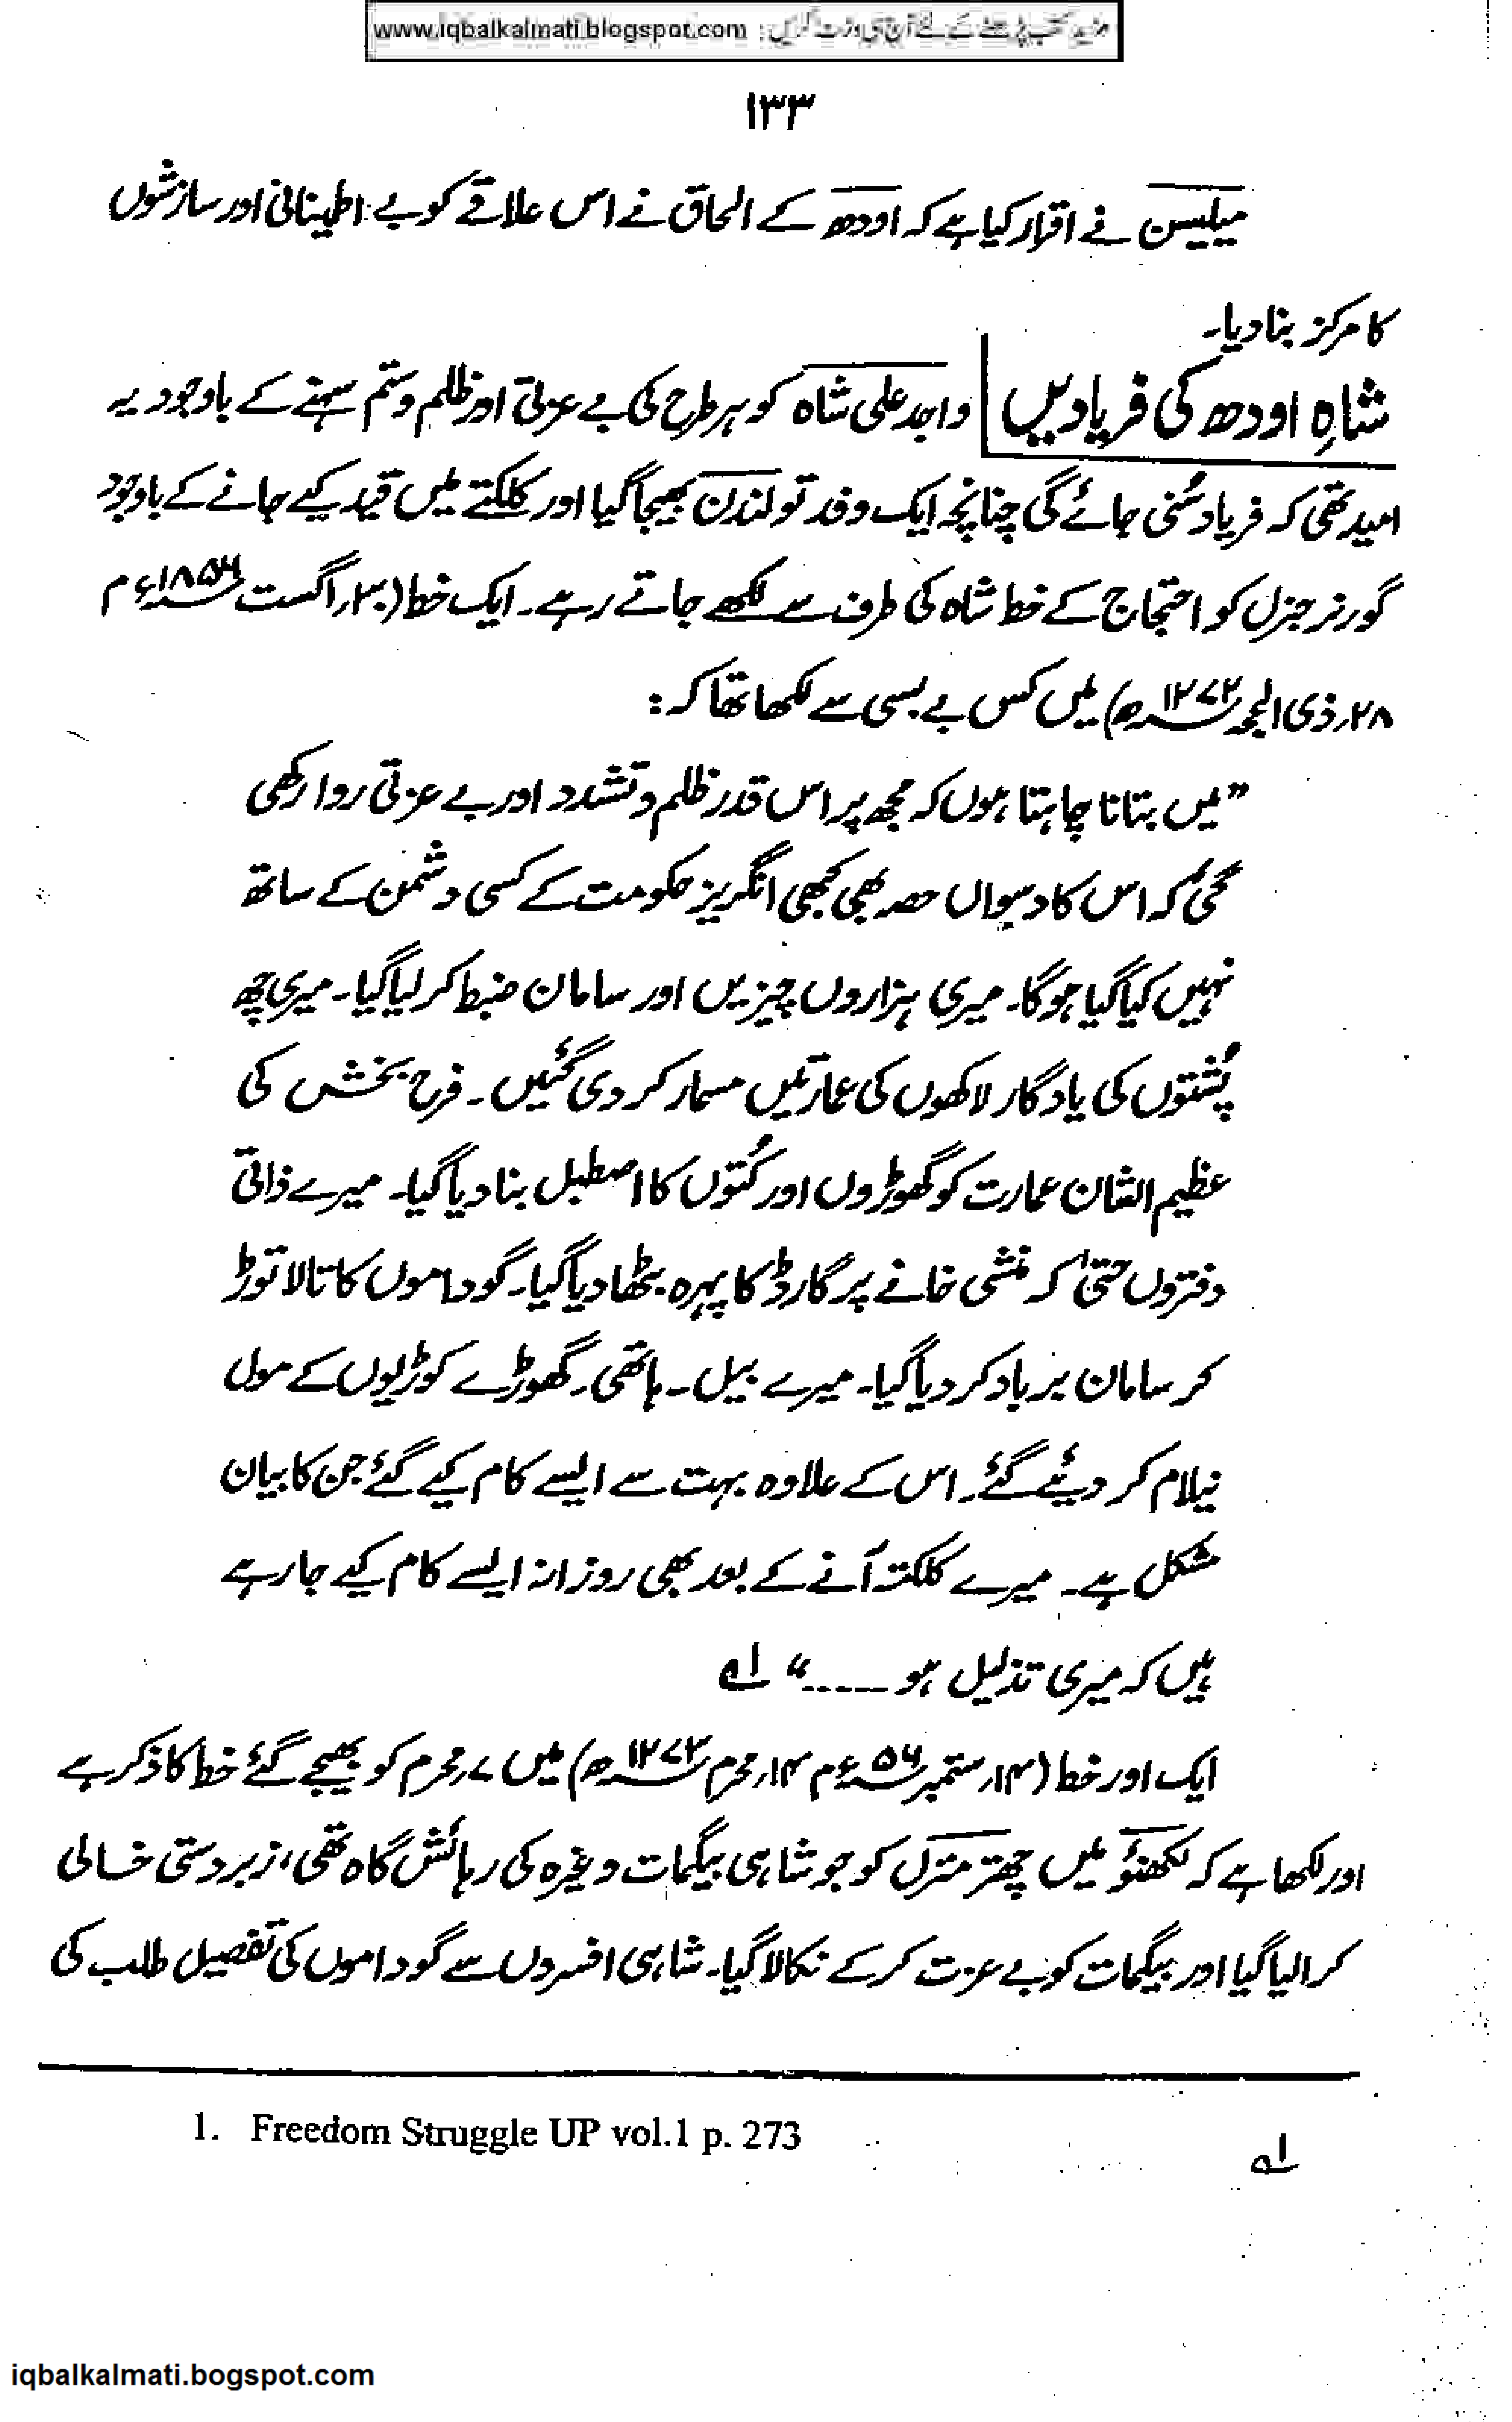 مزید کتب پڑھنے کے لئے آج ہی وزٹ کریں : www.iqbalkalmati.blogspot.com
۱۳۳
میلیسن نے اقرار کیا ہے کہ اودھ کے الحاق نے اس علاقے کو بے اطمینانی اور سازشوں
کا مرکز بنا دیا۔
شاہِ اودھ کی فریادیں | واجد علی شاہ کو ہر طرح کی بے عزتی اور ظلم و ستم سہنے کے باوجود یہ
امید تھی کہ فریاد سُنی جائے گی چنانچہ ایک وفد تو لندن بھیجا گیا اور کلکتے میں قید کیے جانے کے باوجود
گورنر جنرل کو احتجاج کے خط شاہ کی طرف سے لکھے جاتے رہے۔ ایک خط (۳۰؍اگست ۱۸۵۶ء م
۲۸؍ذی الحجہ ۱۲۷۲ھ) میں کس بے بسی سے لکھا تھا کہ :
”میں بتانا چاہتا ہوں کہ مجھ پر اس قدر ظلم و تشدد اور بے عزتی روا رکھی
گئی کہ اس کا دسواں حصہ بھی کبھی انگریز حکومت کے کسی دشمن کے ساتھ
نہیں کیا گیا ہوگا۔ میری ہزاروں چیزیں اور سامان ضبط کر لیا گیا۔ میری چھ
پُشتوں کی یادگار لاکھوں کی عمارتیں مسمار کر دی گئیں۔ فرح بخش کی
عظیم الشان عمارت کو گھوڑوں اور کُتوں کا اصطبل بنا دیا گیا۔ میرے ذاتی
دفتروں حتیٰ کہ منشی خانے پر گارڈ کا پہرہ بٹھا دیا گیا۔ گوداموں کا تالا توڑ
کر سامان برباد کر دیا گیا۔ میرے بیل۔ ہاتھی۔ گھوڑے کوڑیوں کے مول
نیلام کر دیئے گئے۔ اس کے علاوہ بہت سے ایسے کام کیے گئے جن کا بیان
مشکل ہے۔ میرے کلکتہ آنے کے بعد بھی روزانہ ایسے کام کیے جا رہے
ہیں کہ میری تذلیل ہو -----“ ۱ے
ایک اور خط (۱۴؍ستمبر ۵۶ء م ۱۴؍محرم ۱۲۷۳ھ) میں ۷؍محرم کو بھیجے گئے خط کا ذکر ہے
اور لکھا ہے کہ لکھنؤ میں چھتر منزل کو جو شاہی بیگمات وغیرہ کی رہائش گاہ تھی، زبردستی خالی
کرا لیا گیا اور بیگمات کو بے عزت کر کے نکالا گیا۔ شاہی افسروں سے گوداموں کی تفصیل طلب کی
۱ے 1. Freedom Struggle UP vol.1 p. 273
iqbalkalmati.bogspot.com